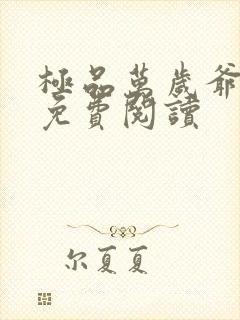 極品萬歲爺
免費閱讀
尔夏夏